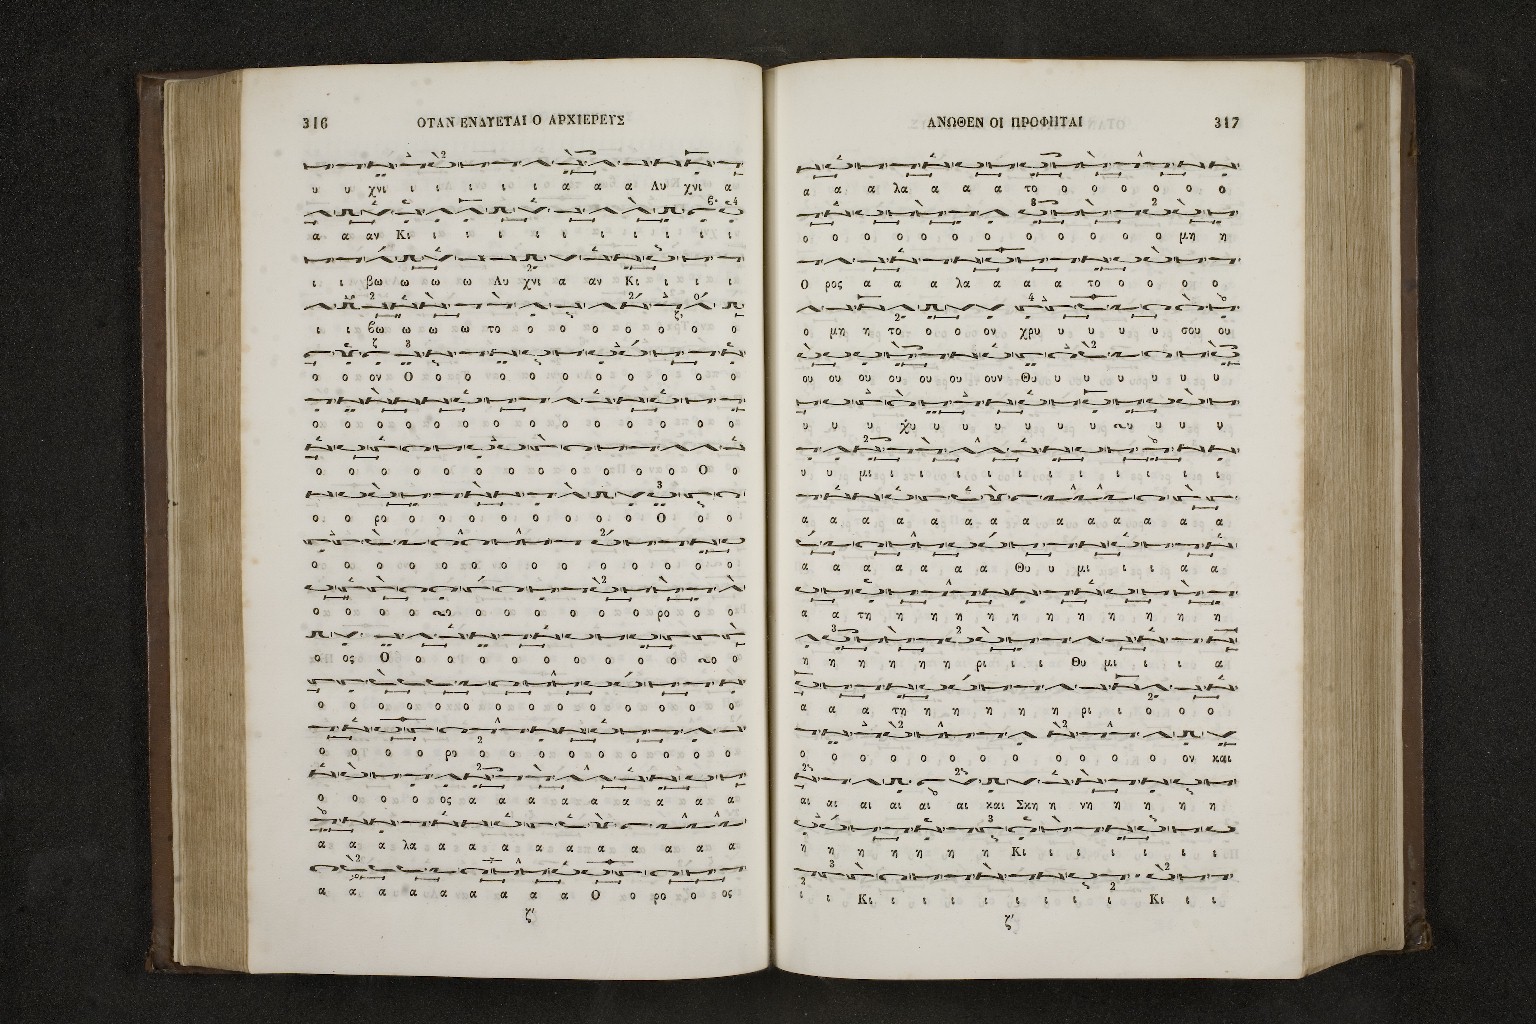 316 ΟΤΑΝ ΕΝΔΥΕΤΑΙ Ο ΑΡΧΙΕΡΕΥΣ
υ υ χνι ι ι ι ι ι α α α Λυ χνι α
α α αν Κι ι ι ι ι ι ι ι ι ι ι
ι ι βω ω ω ω Λυ χνι α αν Κι ι ι ι
ι ι βω ω ω ω το ο ο ο ο ο ο ο ο
ο ο ον Ο ο ο ο ο ο ο ο ο ο ο
ο ο ο ο ο ο ο ο ο ο ο ο ο ο
ο ο ο ο ο ο ο ο ο ο ο ο ο Ο ο
ο ο ρο ο ο ο ο ο ο ο ο Ο ο ο
ο ο ο ο ο ο ο ο ο ο ο ο ο ο
ο ο ο ο ο ο ο ο ο ο ο ρο ο ο
ο ος Ο ο ο ο ο ο ο ο ο ο ο ο
ο ο ο ο ο ο ο ο ο ο ο ο ο ο ο
ο ο ο ο ρο ο ο ο ο ο ο ο ο ο
ο ο ο ο ος α α α α α α α α α
α α α λα α α α α α α α α α α
α α α α α α α α α Ο ο ρο ο ος
ζ'
ΑΝΩΘΕΝ ΟΙ ΠΡΟΦΗΤΑΙ 317
α α α λα α α α το ο ο ο ο ο ο
ο ο ο ο ο ο ο ο ο ο ο ο μη η
Ο ρος α α α λα α α α το ο ο ο ο
ο μη η το ο ο ον χρυ υ υ υ υ σου ου
ου ου ου ου ου ου ουν Θυ υ υ υ υ υ υ
υ υ υ χυ υ υ υ υ υ υ υ υ υ υ
υ υ μι ι ι ι ι ι ι ι ι ι ι ι
α α α α α α α α α α α α α α
α α α α α α α Θυ υ μι ι ι α α
α α τη η η η η η η η η η η η
η η η η η η ρι ι ι Θυ μι ι ι α
α α α τη η η η η η ρι ι ο ο ο
ο ο ο ο ο ο ο ο ο ο ο ο ον και
αι αι αι αι αι αι και Σκη η νη η η η η
η η η η η η η Κι ι ι ι ι ι ι
ι ι Κι ι ι ι ι ι ι ι ι Κι ι ι
ζ'